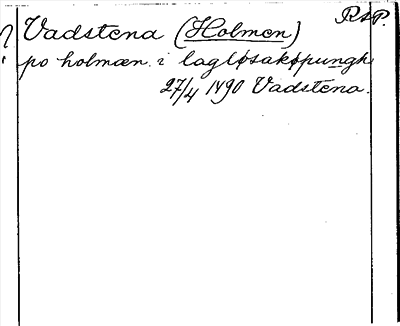 Vadstena (Holmen) RAP.
po holmæn i lagløsakøpungh
27/4 1490 Vadstena.